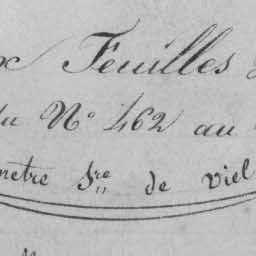 x Feuilles
du Nº 462 au
metre Sre de viel